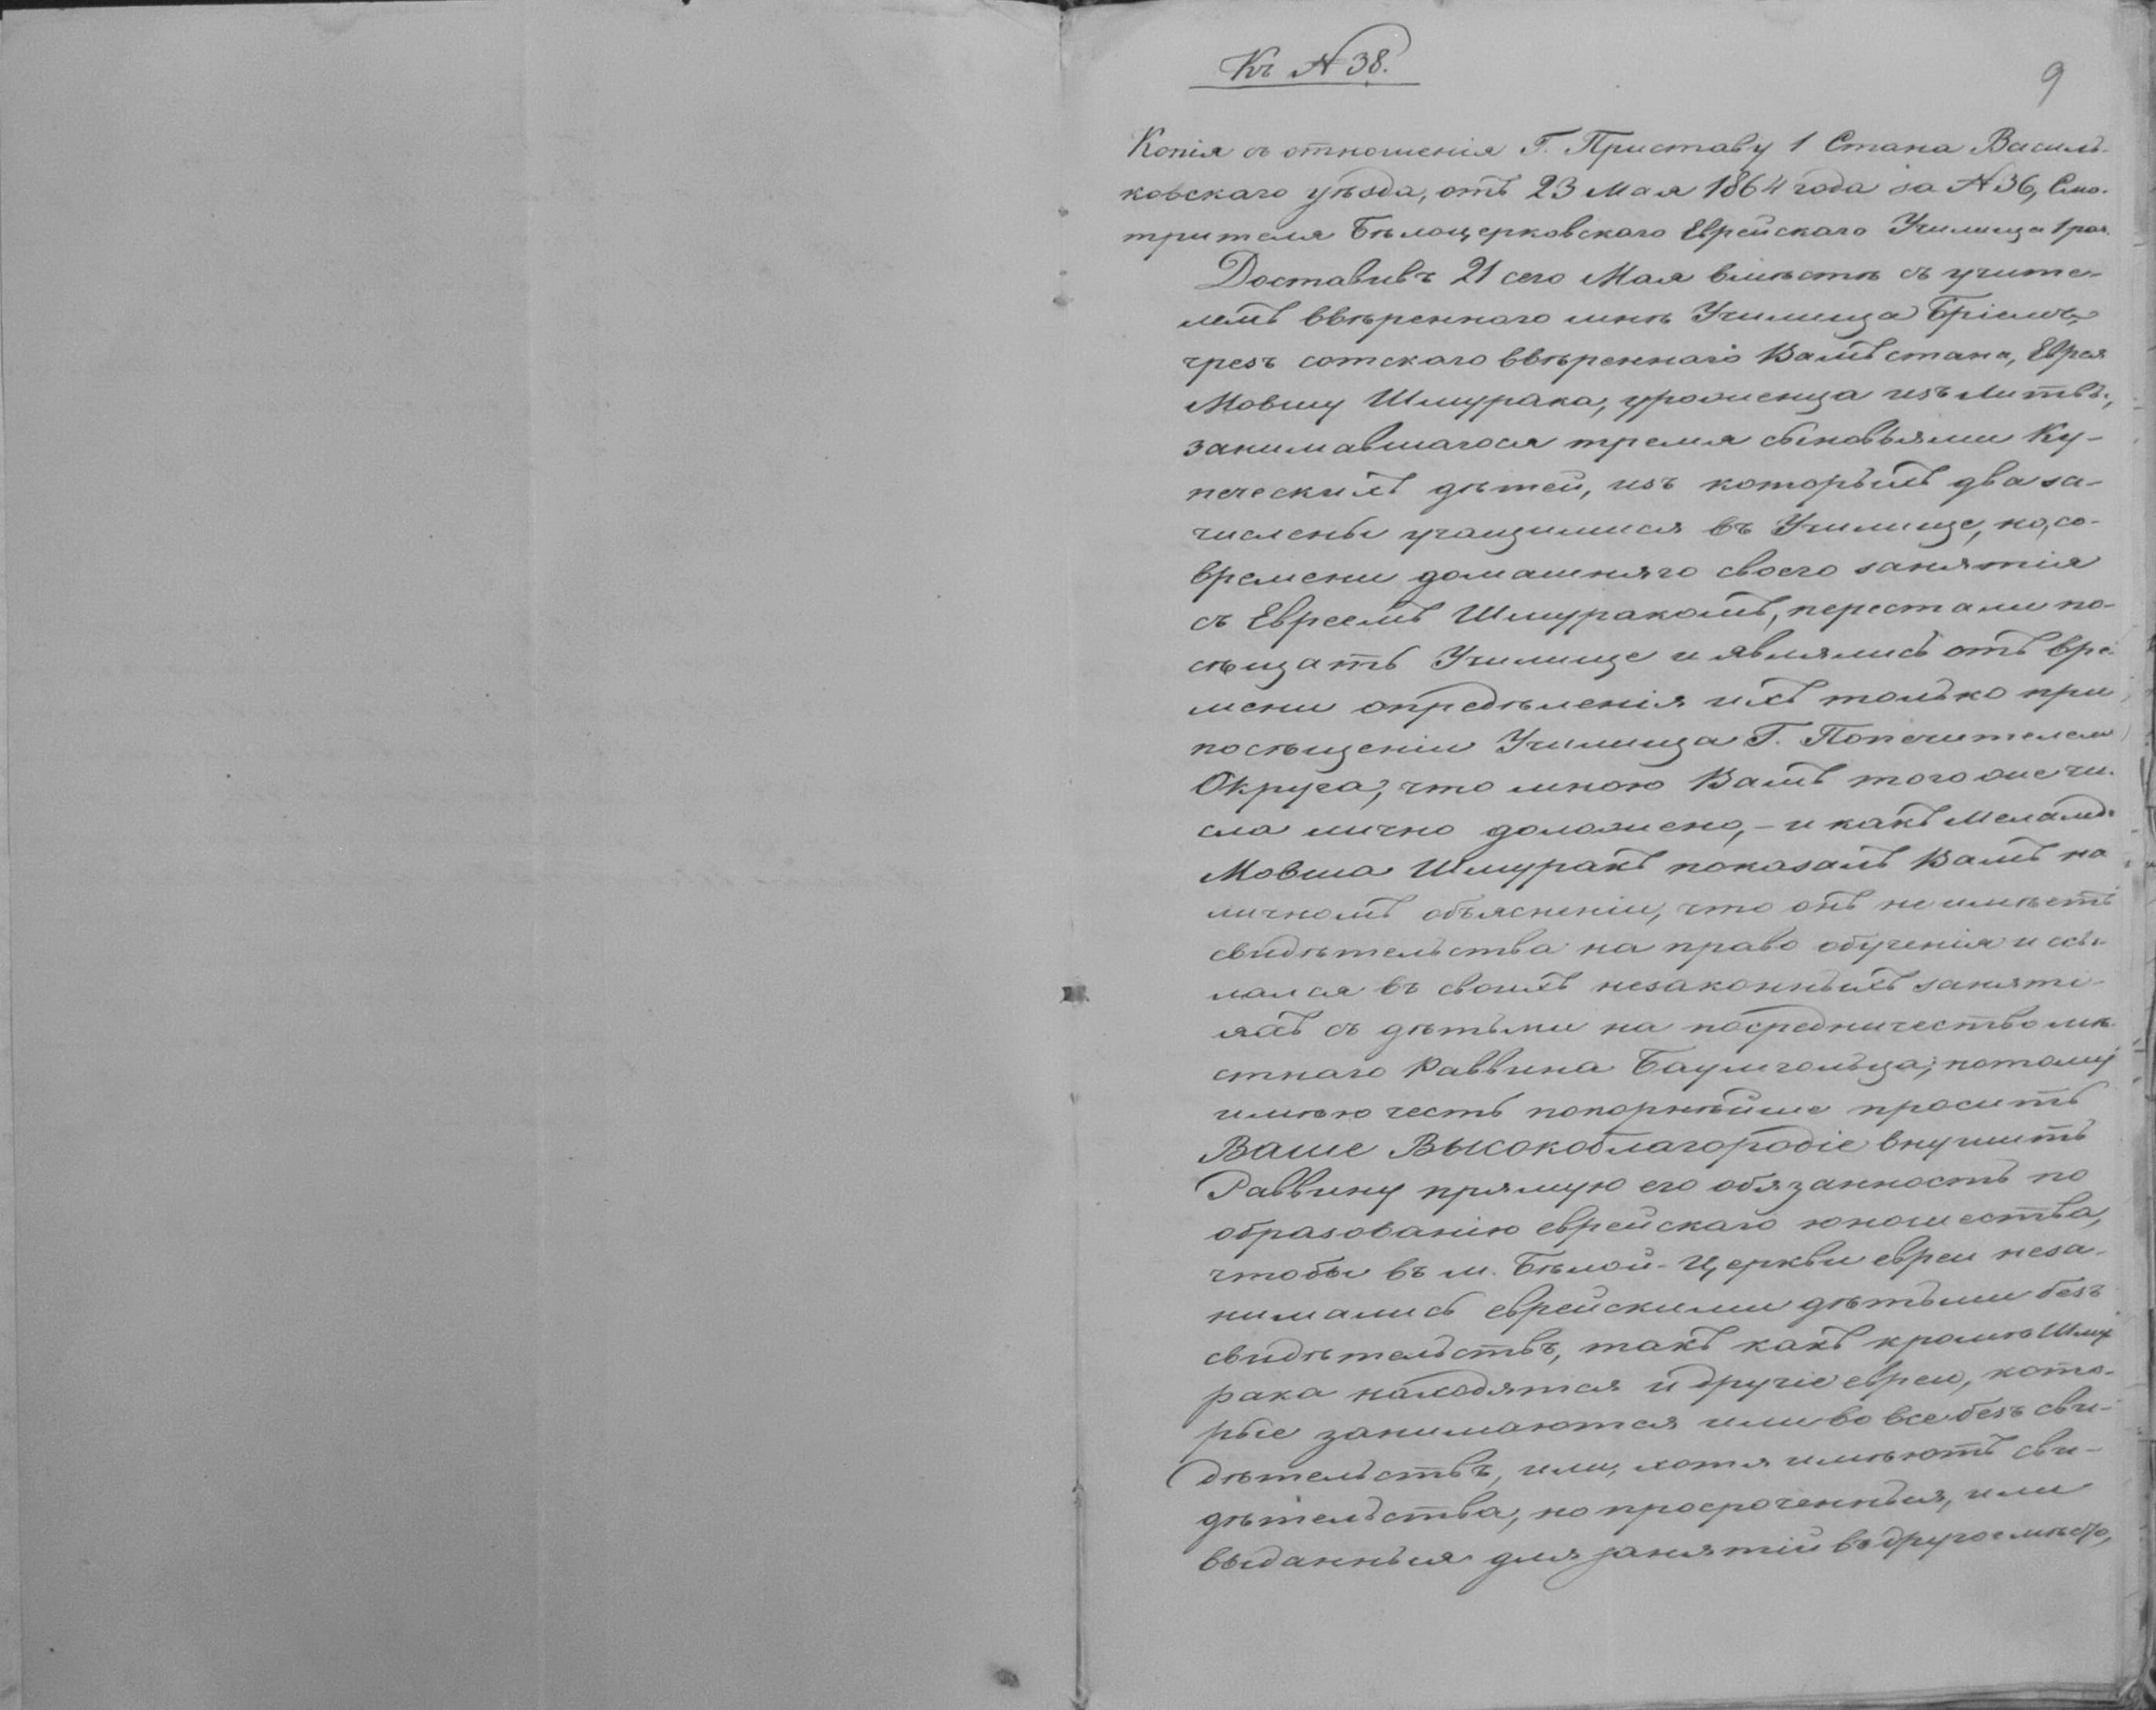 Къ № 38.
9
Копія съ отношенія Г. Приставу 1 Стана Василь-
ковскаго уѣзда, отъ 23 Мая 1864 года за № 36, Смо-
трителя Бѣлоцерковскаго Еврейскаго Училища 1 раз.
Доставивъ 21 сего Мая вмѣстѣ съ учите-
лемъ ввѣреннаго мнѣ Училища
чрезъ сотскаго ввѣреннаго Вамъ стана, Еврея
Мовшу Шмурака, уроженца изъ Литвы,
занимавшагося тремя сыновьями Ку-
печескихъ дѣтей, изъ которыхъ два за-
числены учащимися въ Училище, но, со
времени домашняго своего занятія
съ Евреемъ Шмуракомъ, перестали по-
сѣщать Училище и являлись отъ вре-
мени опредѣленія ихъ только при
посѣщеніи Училища Г. Попечителемъ
Округа, что мною Вамъ того же чи-
сла лично доложено, - и какъ Меламдъ
Мовша Шмуракъ показалъ Вамъ на
личномъ объясненіи, что онъ не имѣетъ
свидѣтельства на право обученія и ссы-
лался въ своихъ незаконныхъ заняті-
яхъ съ дѣтьми на посредничество мѣ-
стнаго Раввина Баумгольца; потому
имѣю честь покорнѣйше просить
Ваше Высокоблагородіе внушить
Раввину прямую его обязанность по
образованію еврейскаго юношества,
чтобы въ м. Бѣлой-Церкви евреи неза-
нимались еврейскими дѣтьми безъ
свидѣтельствъ, такъ какъ кромѣ Шму-
рака находятся и другіе евреи, кото-
рые занимаются или вовсе безъ сви-
дѣтельствъ, или, хотя имѣютъ сви-
дѣтельства, но просроченныя, или
выданныя для занятій въ другое мѣсто,